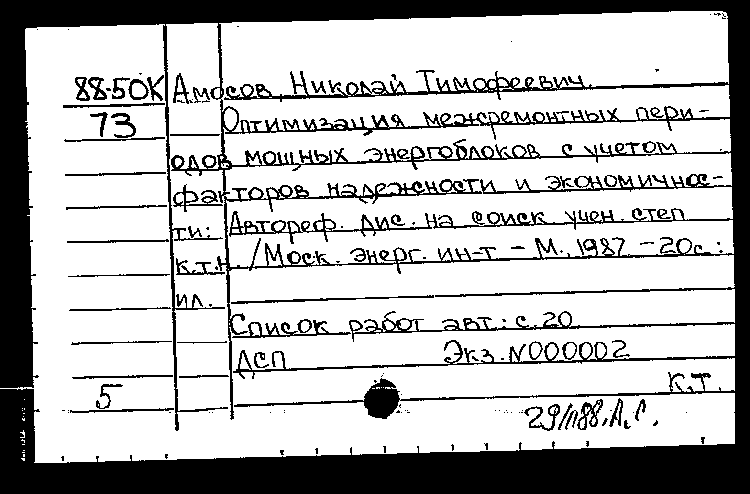 88-50К Амосов, Николай Тимофеевич.
73 Оптимизация межремонтных пери-
одов мощных энергоблоков с учетом
факторов надежности и экономичнос-
ти: Автореф. дис. на соиск учен. степ
к.т.н. /Моск. энерг. ин-т - М., 1987 - 20с.:
ил.
Список работ авт.: с.20
ДСП Экз. N000002
5 К.Т.